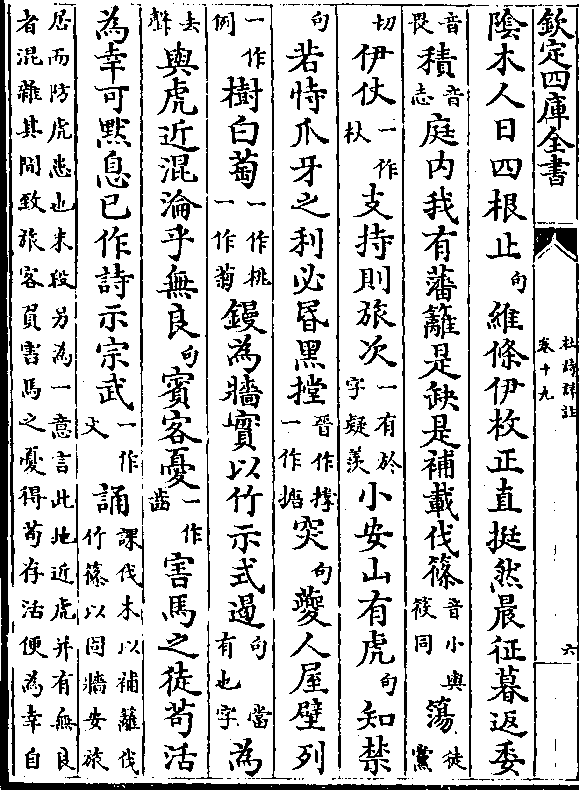 欽定四庫全書 杜詩詳註 卷十九 六
陰木人日四根止句維條伊枚正直挺然晨征暮返委
音畏積音志庭内我有藩籬是缺是補載伐篠音小與筱同簜徒黨
切伊仗一作杖支持則旅次一有於字疑羨小安山有虎句知禁
句若恃爪牙之利必昏黑摚晉作撑一作搪突句夔人屋壁列
一作例樹白萄一作桃一作菊鏝為牆實以竹示式遏句當有也字為
去聲與虎近混淪乎無良句賓客憂一作齒害馬之徒苟活
為幸可默息已作詩示宗武一作文誦課伐木以補籬伐竹篠以固牆安旅
居而防虎患也末段另為一意言此地近虎并有無良
者混雜其間致旅客貟害馬之憂得苟存活便為幸自